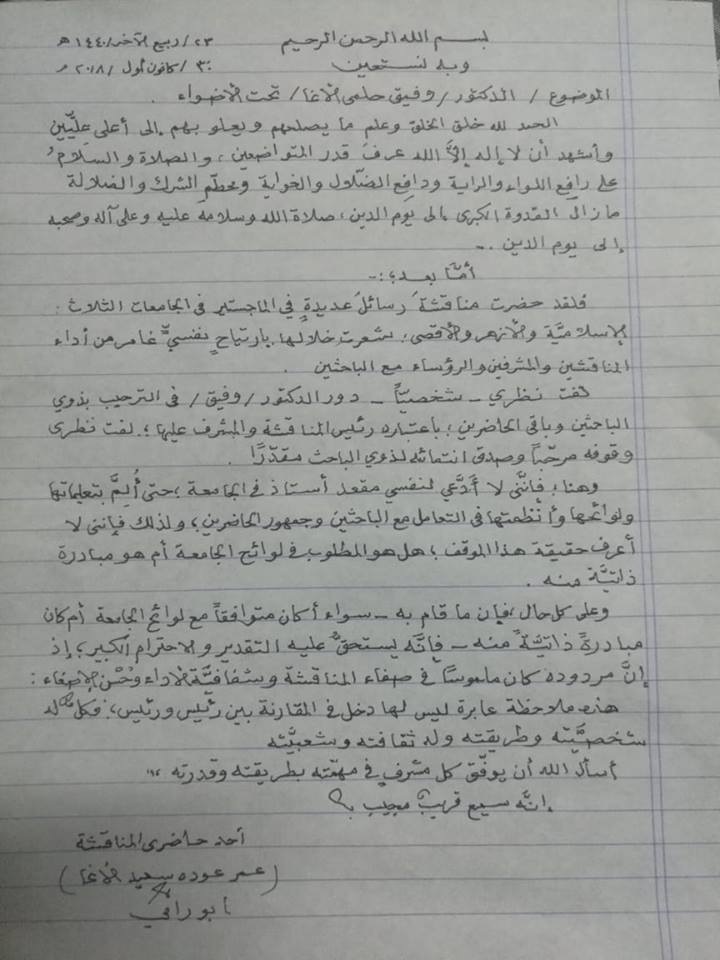 بسم الله الرحمن الرحيم ٢٣/ربيع الآخر/١٤٤٠هـ
وبه نستعين ٣٠/كانون أول/٢٠١٨م
الموضوع / الدكتور/ وفيق حلمي الأغا/ تحت الأضواء .
الحمد لله خلق الخلق وعلم ما يصلحهم ويعلو بهم إلى أعلى عليّين
وأشهد أن لا إله إلاّ الله عرف قدر المتواضعين، والصلاة والسلامُ
على رافع اللواء والراية ودافع الضلال والغواية ومحطّم الشرك والضلالة
ما زال القدوة الكبرى إلى يوم الدين، صلاة الله وسلامه عليه وعلى آله وصحبه
إلى يوم الدين .-
أمّا بعد؛:-
فلقد حضرت مناقشة رسائل عديدةٍ في الماجستير في الجامعات الثلاث :
الإسلاميّة والأزهر والأقصى؛ شعرت خلالها بارتياحٍ نفسيٍّ غامر من أداء
المناقشين والمشرفين والرؤساء مع الباحثين .
لفت نظري - شخصيّاً - دور الدكتور/وفيق/ في الترحيب بذوي
الباحثين وباقي الحاضرين؛ باعتباره رئيس المناقشة والمشرف عليها؛ لفت نظري
وقوفه مرحّباً وصدق انتمائه لذوي الباحث مقدّرًا .
وهنا؛ فإنّني لا أدّعي لنفسي مقعد أستاذ في الجامعة؛ حتى أُلِمَّ بتعليماتها
ولوائحها وأنظمتها في التعامل مع الباحثين وجمهور الحاضرين؛ ولذلك فإنني لا
أعرف حقيقة هذا الموقف؛ هل هو المطلوب في لوائح الجامعة أم هو مبادرة
ذاتيّة منه .
وعلى كل حال، فإن ما قام به - سواء أكان متوافقاً مع لوائح الجامعة أم كان
مبادرةً ذاتيّةً منه - فإنّه يستحقّ عليه التقدير والاحترام الكبير؛ إذ
إنَّ مردوده كان ملموسًا في صفاء المناقشة وشفافيّة الأداء وحُسْن الإصغاء :
هذه ملاحظة عابرة ليس لها دخل في المقارنة بين رئيس ورئيس؛ فكلٌّ له
شخصيَّته وطريقته وله ثقافته وشعبيَّته
أسأل الله أن يوفّق كل مشرفٍ في مهمّته بطريقته وقدرته
إنَّه سميع قريبٌ مجيب
أحد حاضري المناقشة
(عمر عوده سعيد الأغا)
أبو رامي